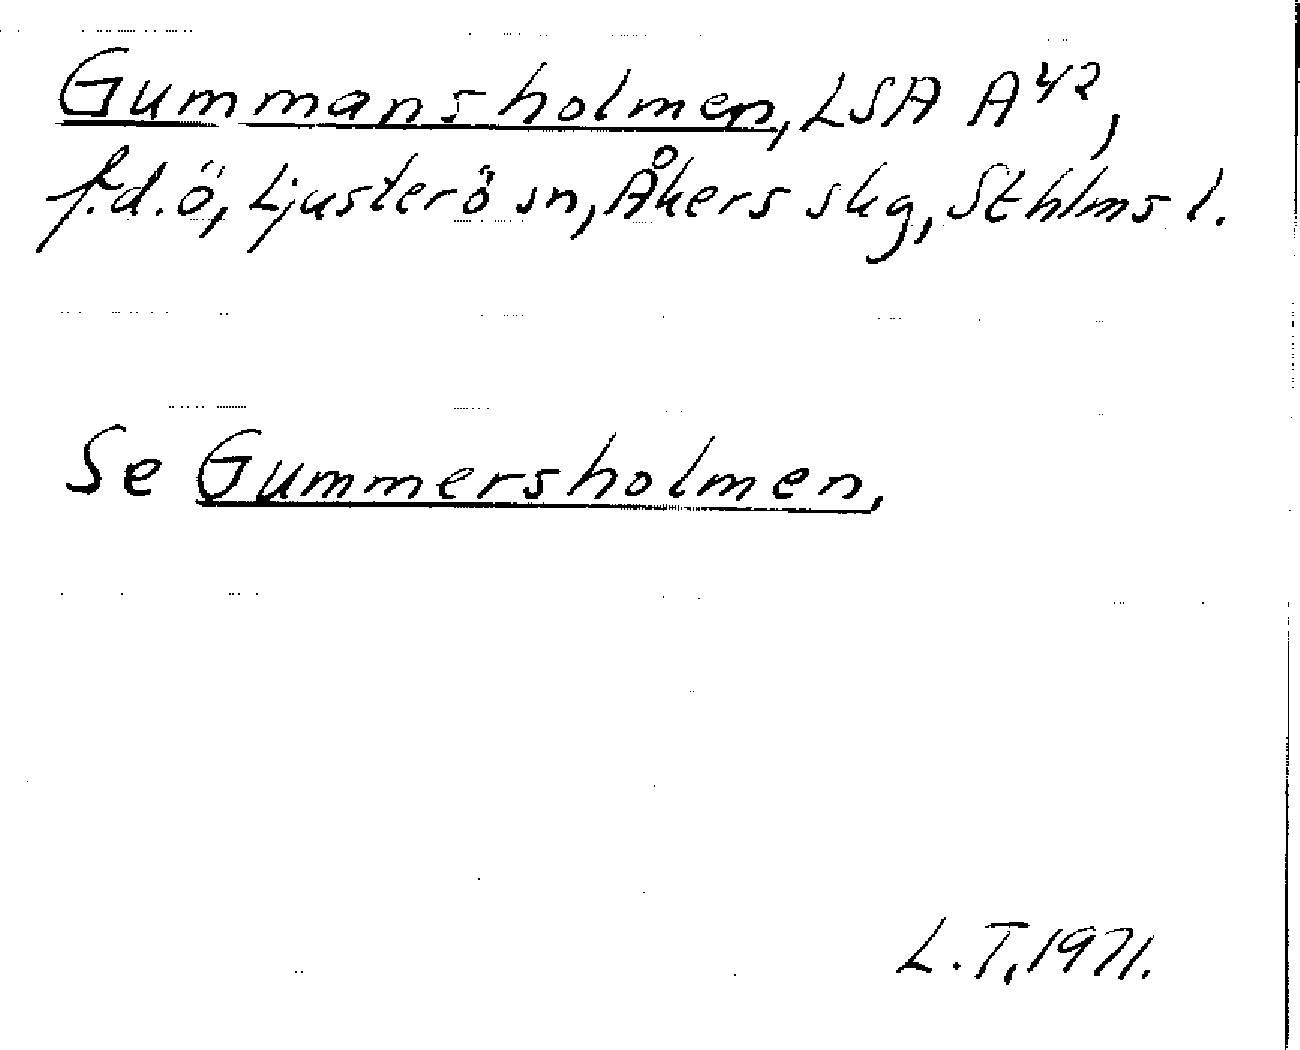 Gummansholmen, LSA A⁴²,
f.d. ö, Ljusterö sn, Åkers skg, Sthlms l.
Se Gummersholmen.
L.T. 1971.